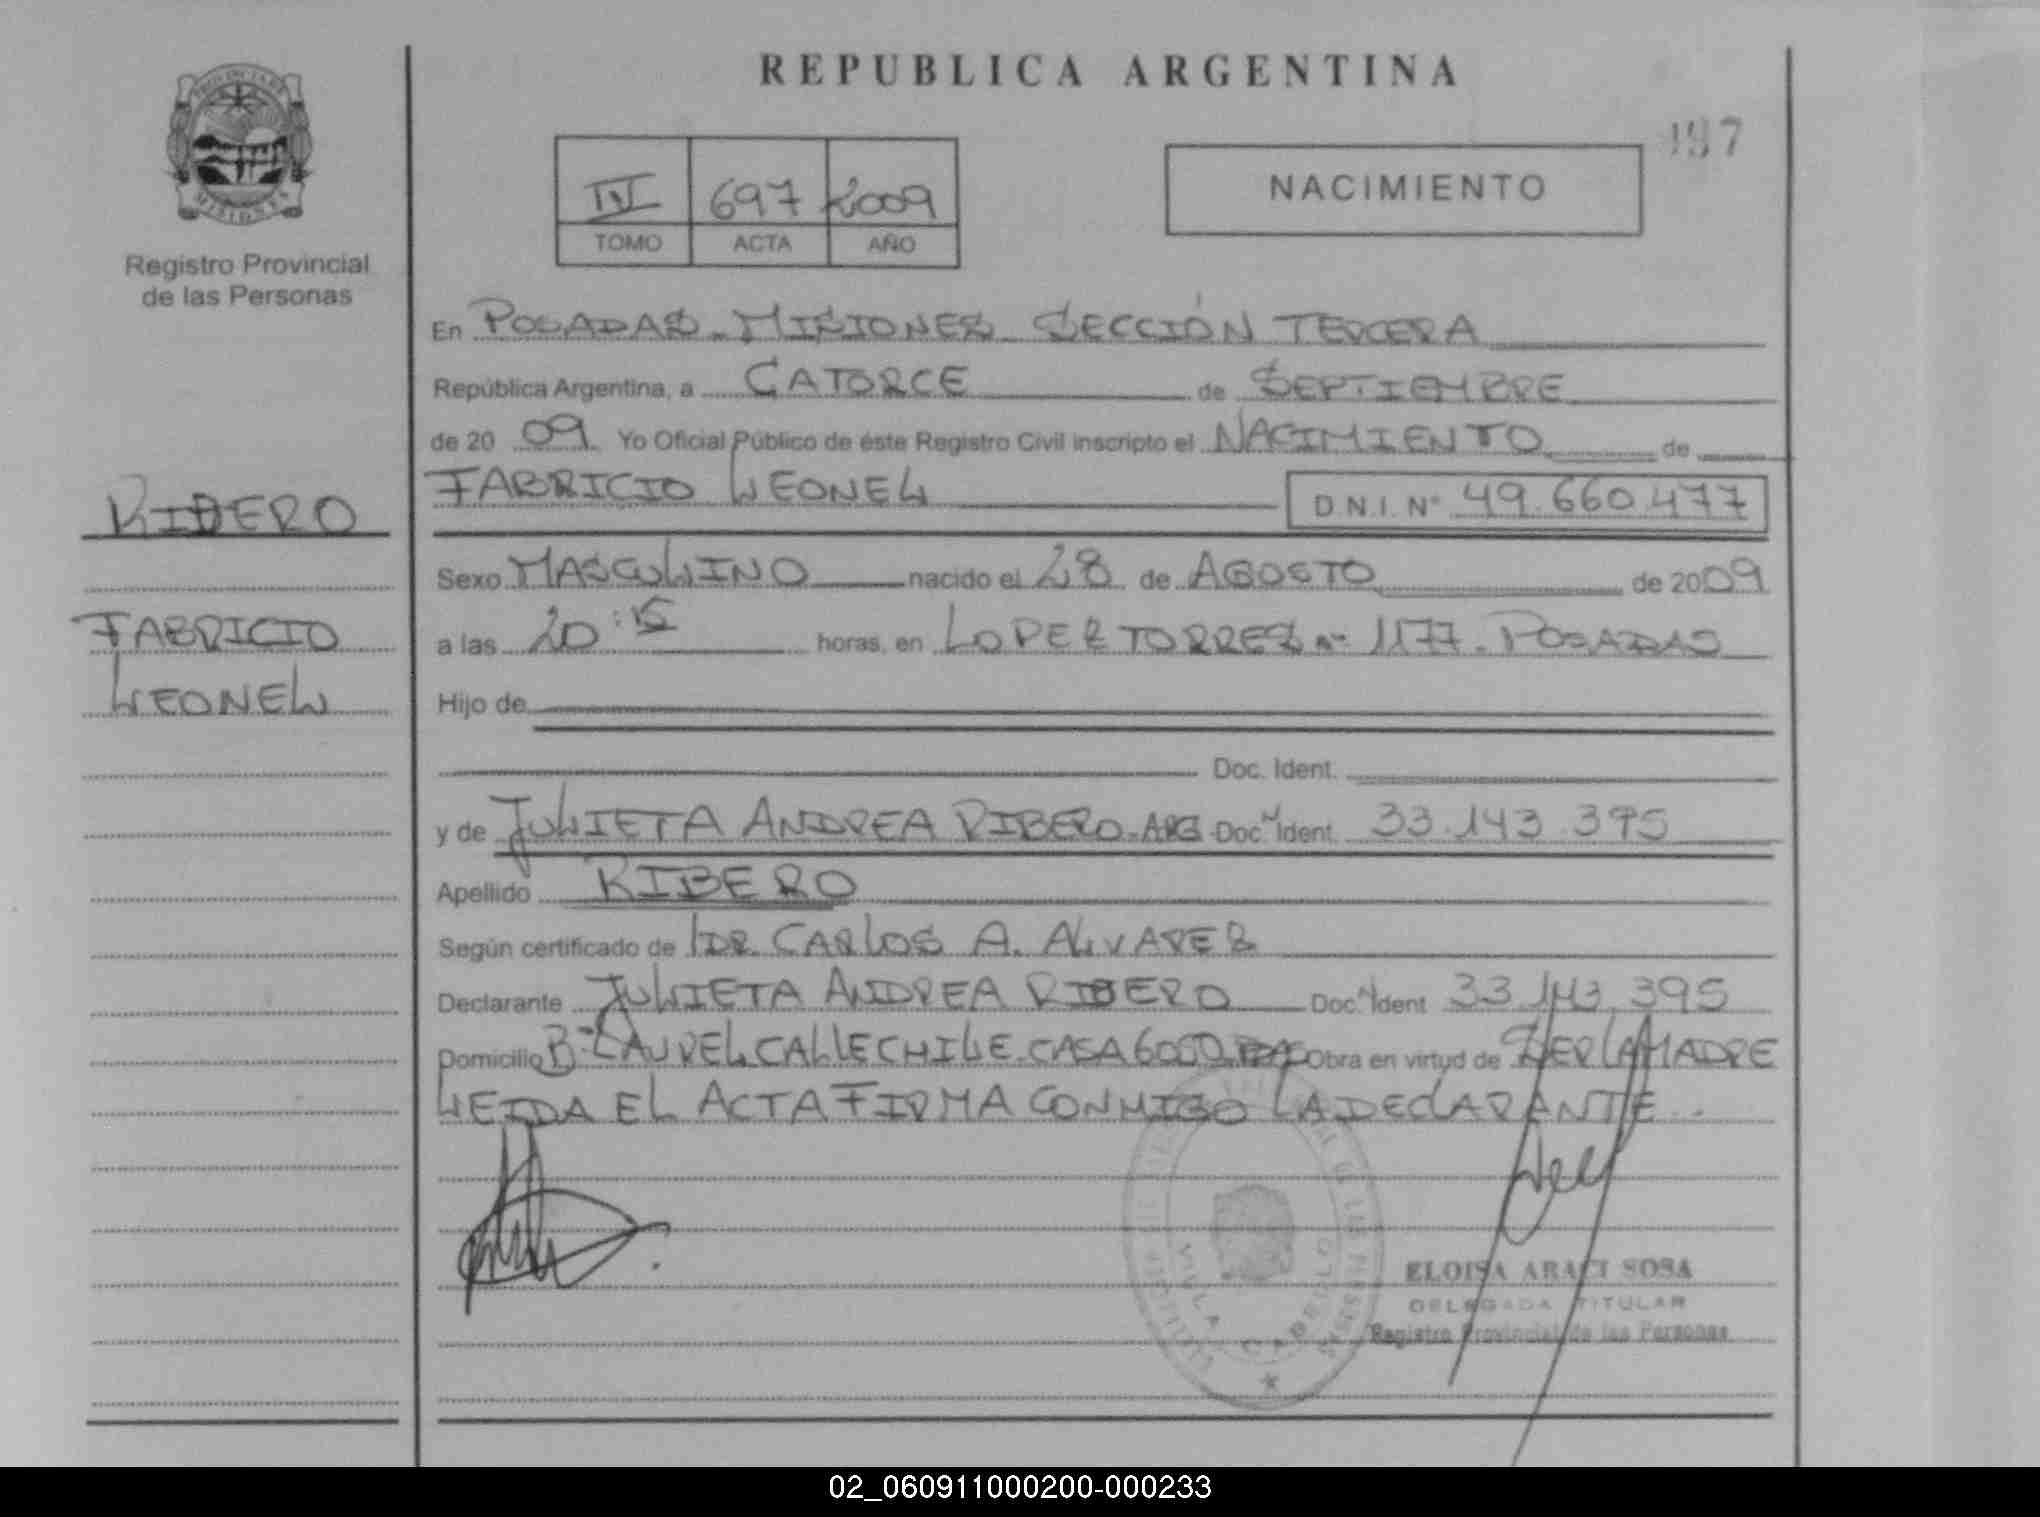 REPUBLICA ARGENTINA
197
PROVINCIA DE
MISIONES
Registro Provincial
de las Personas
IV 697 2009
TOMO ACTA AÑO
NACIMIENTO
En POSADAS - MISIONES - SECCIÓN TERCERA
República Argentina, a CATORCE de SEPTIEMBRE
de 20 09 Yo Oficial Público de éste Registro Civil inscripto el NACIMIENTO de
FABRICIO LEONEL D.N.I. Nº 49.660.477
RIBERO
FABRICIO
LEONEL
Sexo MASCULINO nacido el 28 de AGOSTO de 2009
a las 20:15 horas, en LOPEZ TORRES Nº 1177 - POSADAS
Hijo de
Doc. Ident.
y de JULIETA ANDREA RIBERO - ARG - Doc. N Ident. 33.143.395
Apellido RIBERO
Según certificado de DR. CARLOS A. ALVAREZ
Declarante JULIETA ANDREA RIBERO Doc. N Ident 33.143.395
Domicilio Bº LAUREL CALLE CHILE - CASA 6050 Obra en virtud de SER LA MADRE
LEIDA EL ACTA FIRMA CONMIGO LA DECLARANTE.
VILLA CABELLO
ELOISA ARACI SOSA
DELEGADA TITULAR
Registro Provincial de las Personas
02_060911000200-000233